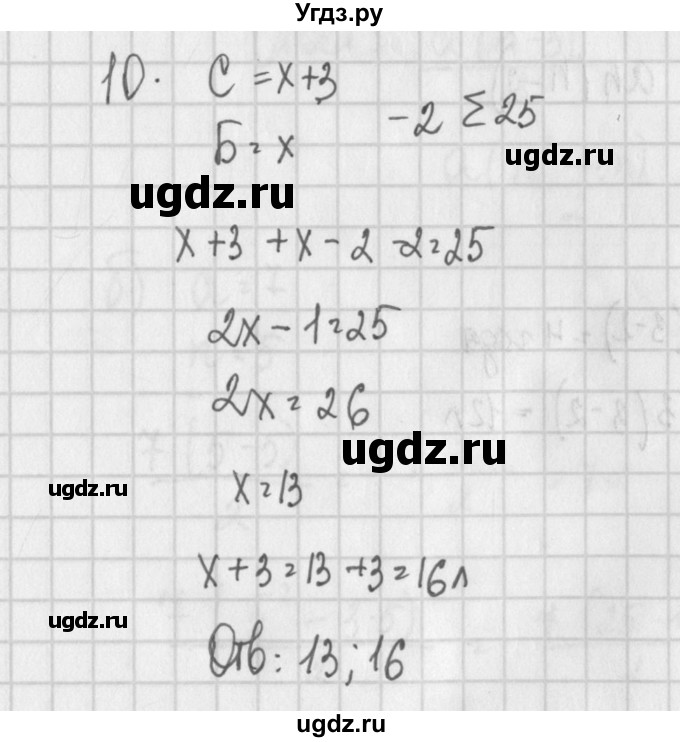 Угдз.ру
10. С = x+3
-2 Σ 25
Б = x
ugdz.ru
ugdz.ru
x+3 + x - 2 - 2 = 25
2x - 1 = 25
2x = 26
ugdz.ru
ugdz.ru
x = 13
x + 3 = 13 + 3 = 16 л
ugdz.ru
Отв: 13; 16
ugdz.ru